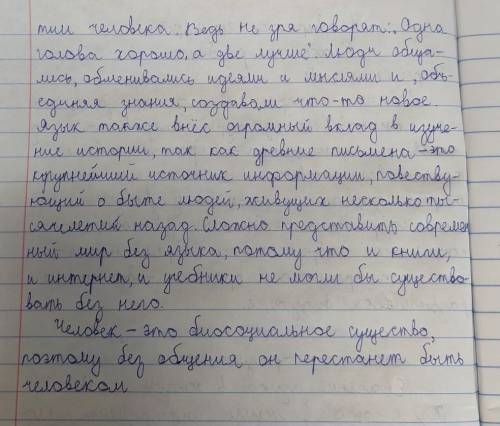 тии человека. Ведь не зря говорят: „Одна
голова хорошо, а две лучше". Люди обща-
лись, обменивались идеями и мыслями и, объ-
единяя знания, создавали что-то новое.
Язык также внёс огромный вклад в изуче-
ние истории, так как древние письмена - это
крупнейший источник информации, повеству-
ющий о быте людей, живущих несколько ты-
сячелетий назад. Сложно представить современ
ный мир без языка, потому что и книги,
и интернет, и учебники не могли бы существо-
вать без него.
Человек - это биосоциальное существо,
поэтому без общения он перестанет быть
человеком